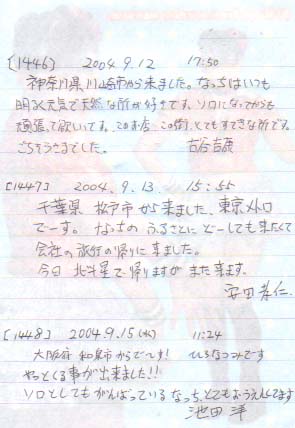 [1446] 2004.9.12 17:50
神奈川県川崎市から来ました。なっちはいつも
明るく元気で天然な所が好きです。ソロになってからも
頑張って欲しいです。このお店、この街、とてもすてきな所です。
ごちそうさまでした。 古谷吉康
[1447] 2004.9.13. 15:55
千葉県 松戸市から来ました、東京メトロ
でーす。なっちのふるさとにどーしても来たくて
会社の旅行の帰りに来ました。
今日 北斗星で帰りますが また来ます。
安田孝仁.
[1448] 2004.9.15(水) 11:24
大阪府 和泉市からで〜す! ひろなつつみです
やっとくる事が出来ました!!
ソロとしてもがんばっているなっち、とてもおうえんしてます
池田 洋